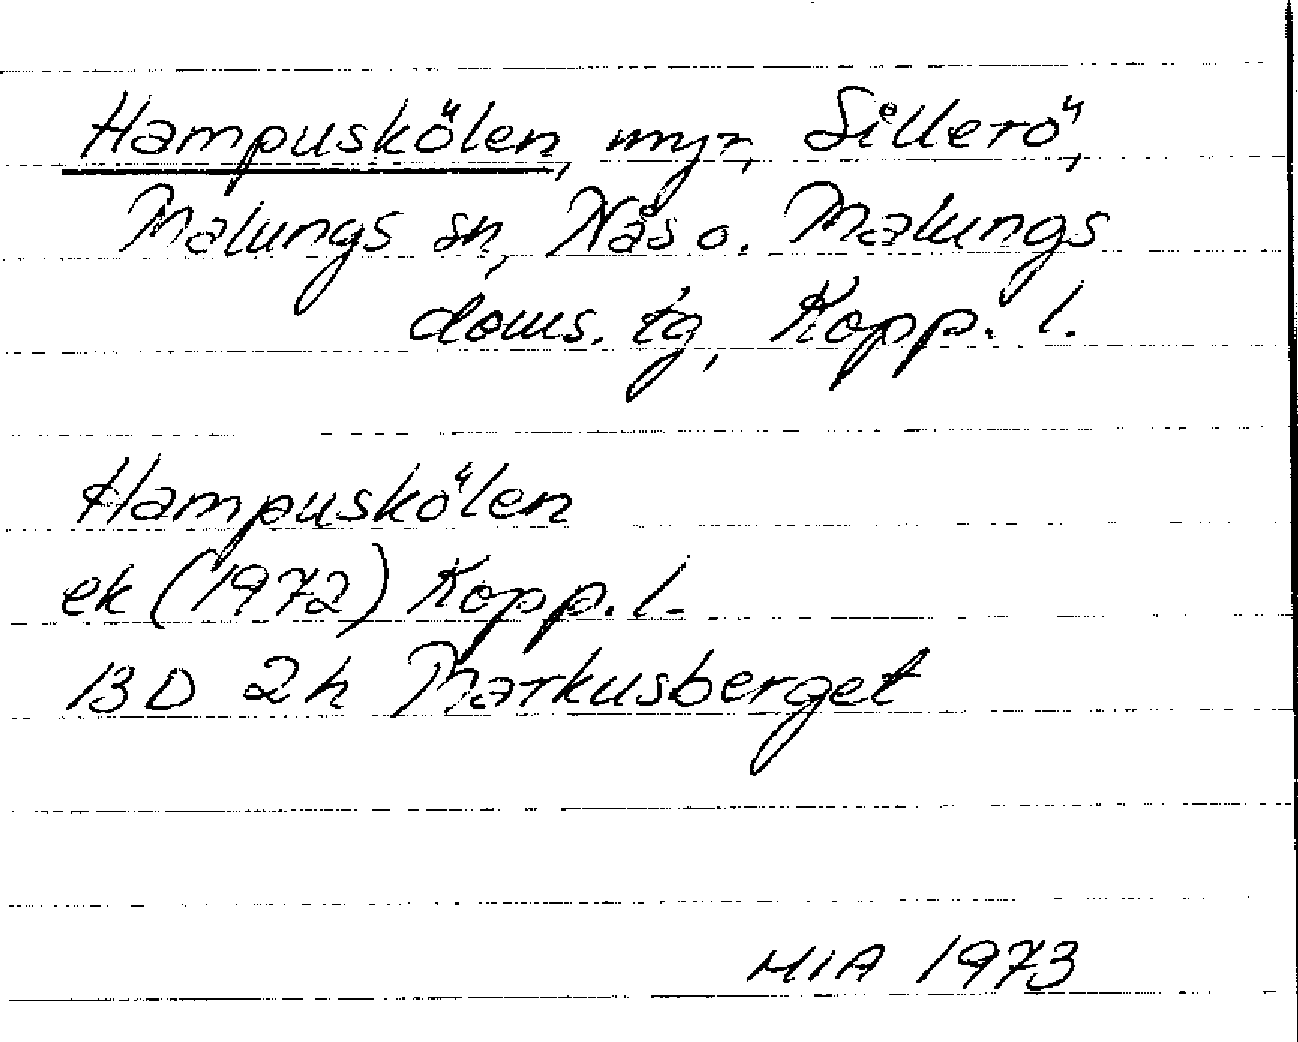 Hampuskölen, myr, Sillerö,
Malungs sn, Nås o. Malungs
doms. tg, Kopp. l.
Hampuskölen
ek (1972) Kopp. l.
13 D 2h Markusberget
MIA 1973